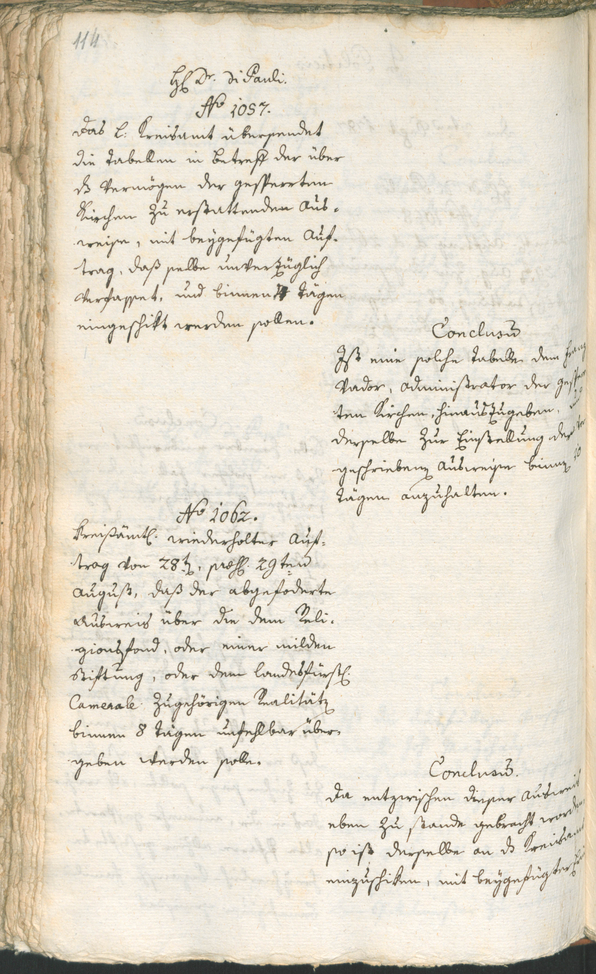 114
H. Dr. di Pauli.
No 1057.
Das l. Kreisamt übersendet
die Tabellen in betreff der über
ds Vermögen der gesperrten
Kirchen zu erstattenden Aus-
weise, mit beygefügten Auf-
trag, daß selbe unverzüglich
verfasset, und binnen Tägen
eingeschikt werden sollen.
Conclusū
Ist eine solche Tabelle dem Franz
Vador, Administrator der gesperr
ten Kirchen, hinauszugeben,
derselbe zur Einstellung des
geschriebenen Ausweises binnen 10
Tägen anzuhalten.
No 1062.
Kreisämtl. wiederholter Auf-
trag von 28t, praes. 29ten
August, daß der abgefoderte
Ausweis über die dem Reli-
gionsfond, oder einer milden
Stiftung, oder dem landesfürstl.
Camerale zugehörigen Realitäten
binnen 8 Tägen unfehlbar über-
geben werden solle.
Conclusū.
Da entzwischen dieser Ausweis
eben zu stande gebracht worden
so ist derselbe an ds Kreisamt
einzuschiken, mit beygefügter